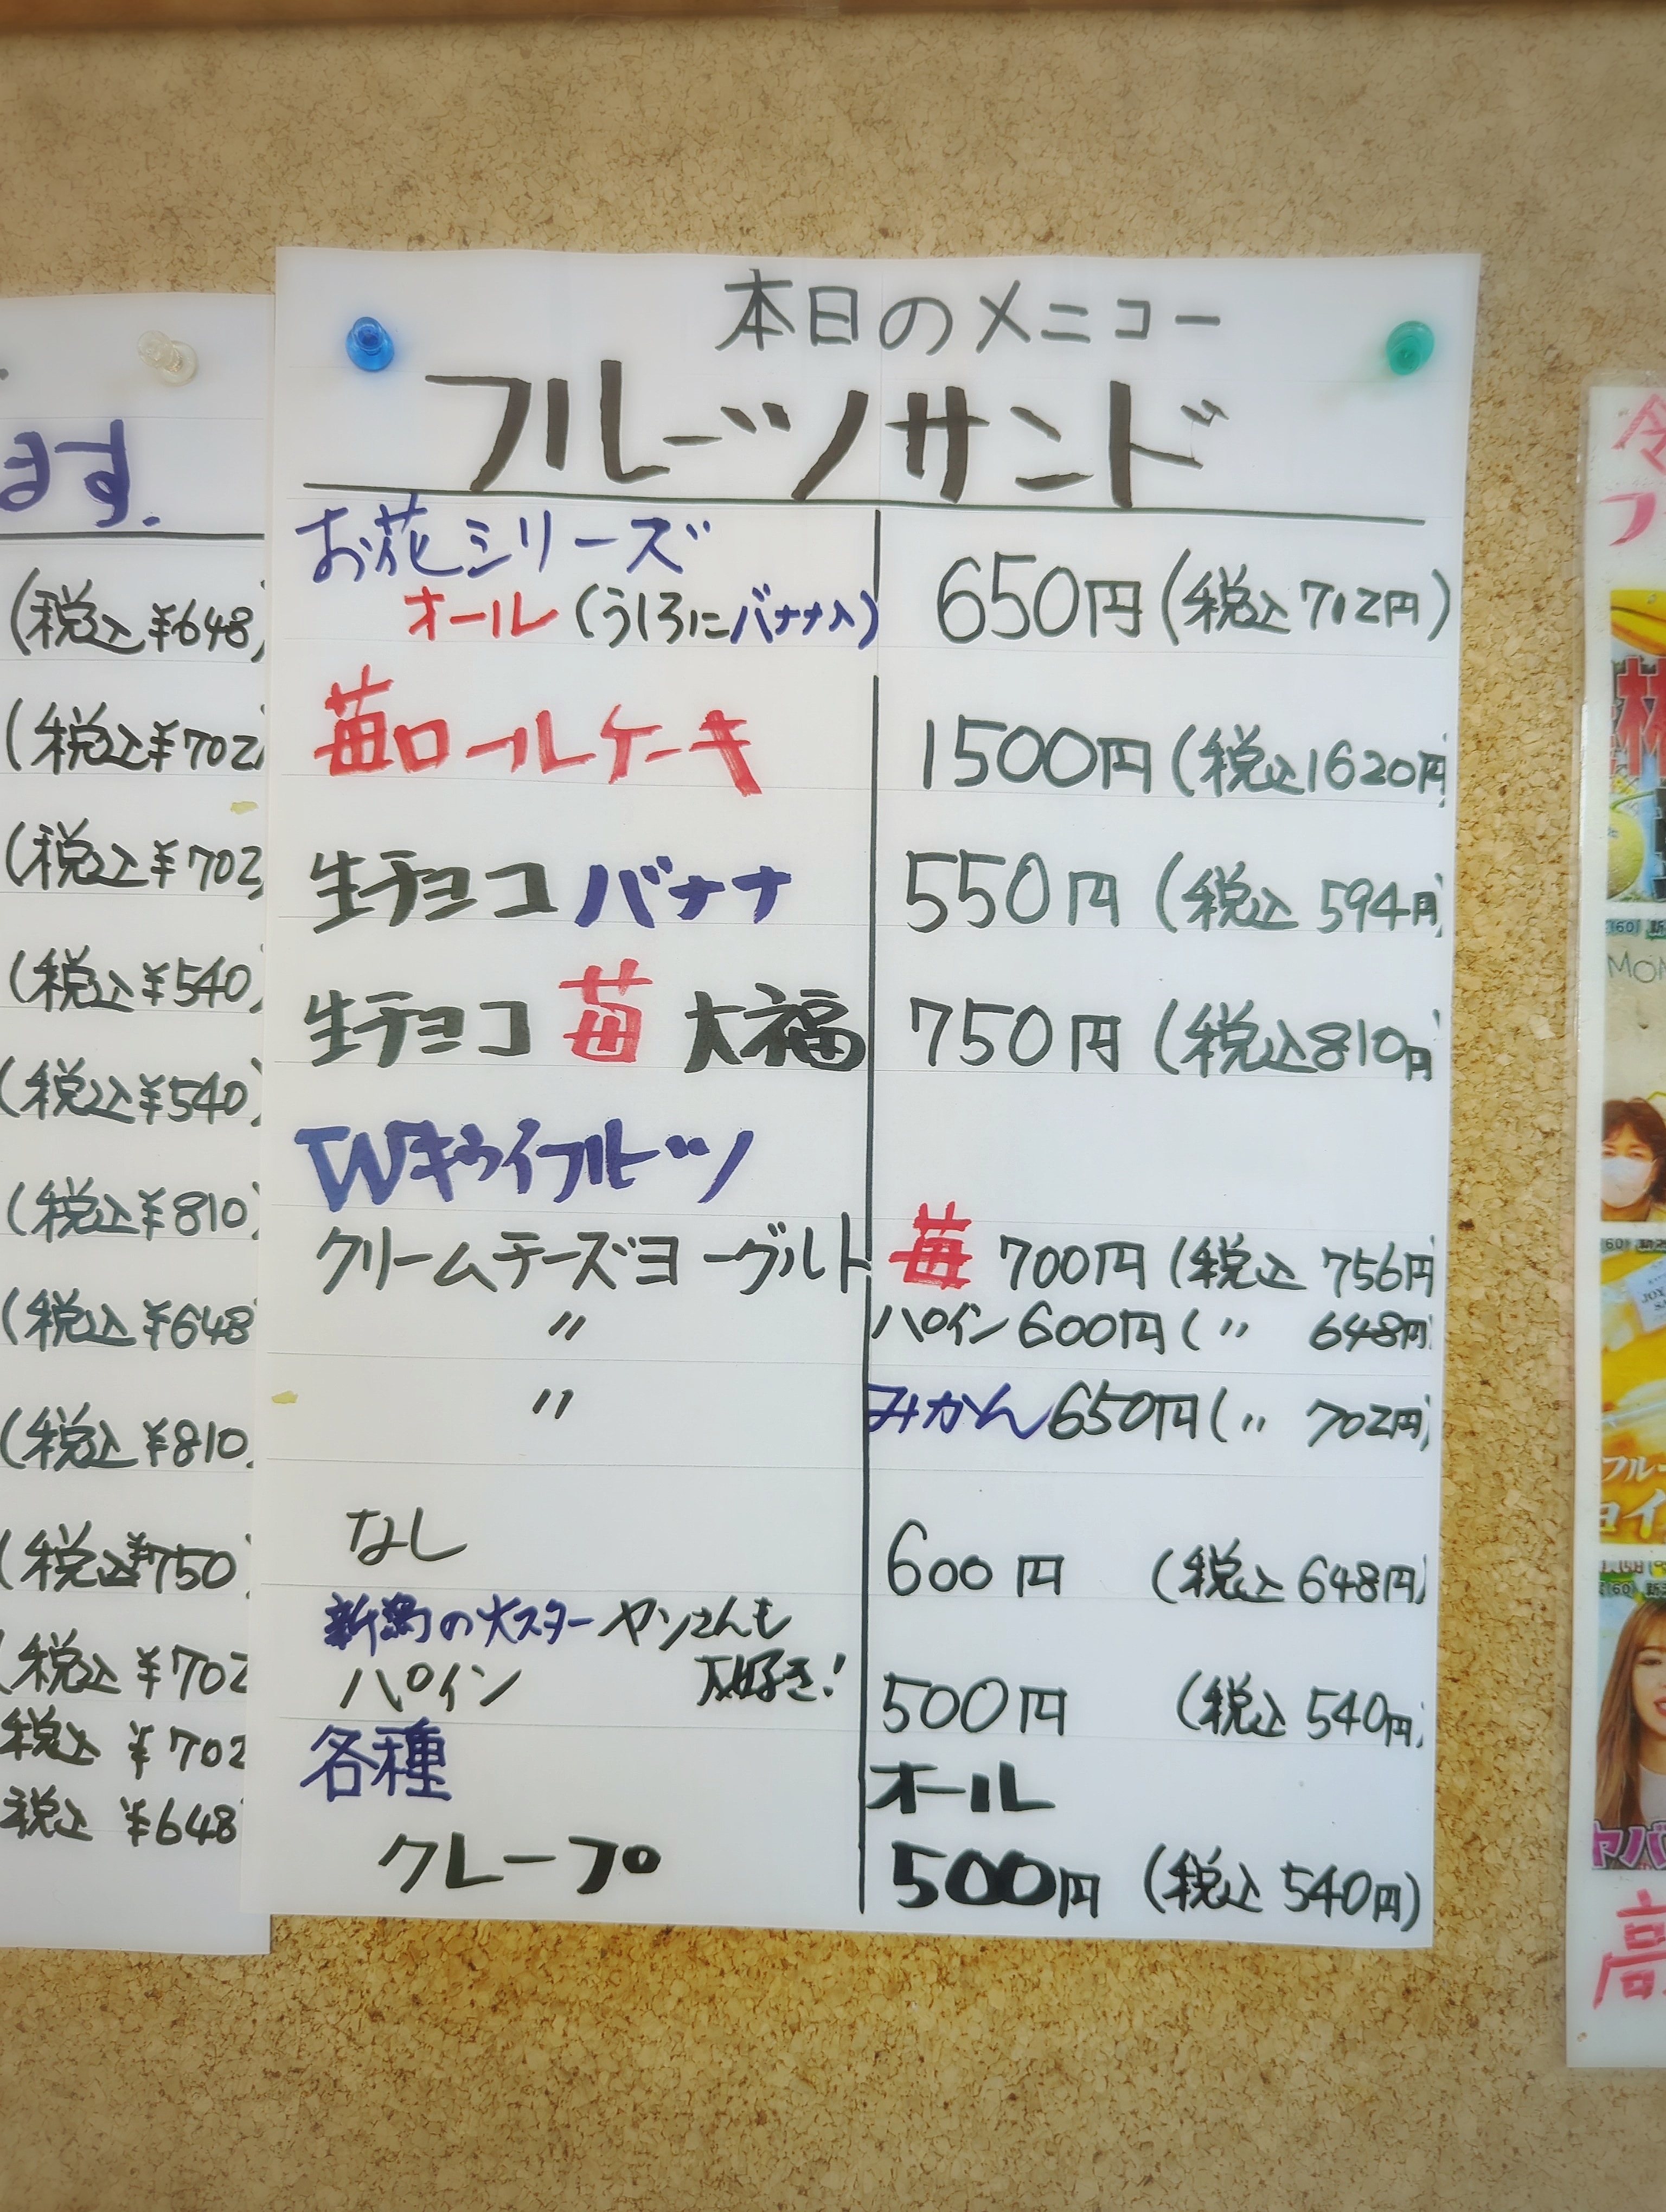 ます.
(税込¥648)
(税込¥702
(税込¥702
(税込¥540)
(税込¥540)
(税込¥810)
(税込¥648
(税込¥810)
(税込¥750)
(税込¥702
税込 ¥702
税込 ¥648
本日のメニコー
フルーツサンド
お花シリーズ
オール(うしろにバナナ入) 650円(税込712円)
苺ロールケーキ 1500円(税込1620円
生チョコバナナ 550円(税込594円)
生チョコ苺大福 750円(税込810円)
Wキウイフルーツ
クリームチーズヨーグルト 苺 700円(税込 756円
〃 パイン600円(〃 648円)
〃 みかん650円(〃 702円)
なし 600円 (税込648円)
新潟の大スターヤンさんも
パイン 大好き! 500円 (税込540円)
各種 オール
クレープ 500円 (税込540円)
フル
高